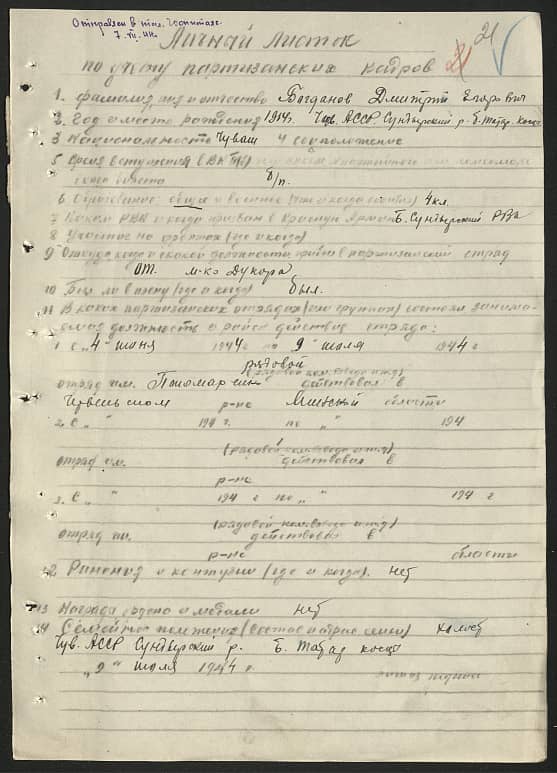 Отправлен в
7. VII. 44.
21 21
Личный листок
по учету партизанских кадров
1. Фамилия имя и отчество Богданов Дмитрий Егорович
2. Год и место рождения 1914г. Чув. АССР Сундырский р. Б. Татар
3 Национальность Чуваш 4 соцположение
5 Время вступления в ВКП(б)
билета б/п.
6 Образование: общее и военное (что и когда окончил) 4 кл.
7 Каким РВК и когда призван в Красную Армию Б. Сундырский РВК
8 Участие на фронтах (где и когда)
9 Откуда, когда и с какой должности прибыл в партизанский отряд
от. м-ко Дукора
10 Был ли в плену (где и когда) был.
11 В каких партизанских отрядах (или группах) состоял занимаемая
должность и район действия отряда:
1. С „4" июня 1944г по 9" июля 1944 г
рядовой
отряд им. (рядовой ком. взвода и т.д.)
действовал в
р-не Минской области
2. С „ " 194 г. по „ " 194
(рядовой ком. взвода и т.д.)
отряд им. действовал в
р-не
3. С „ " 194 г по „ " 194 г
(рядовой ком. взвода и т.д.)
отряд им. действовал в
р-не области
12 Ранения и контузии (где и когда). нет
13 Награда ордена и медали нет
14 Семейное положение (состав и адрес семьи) холост
Чув. АССР Сундырский р. Б. Татар
„9" июля 1944 г.